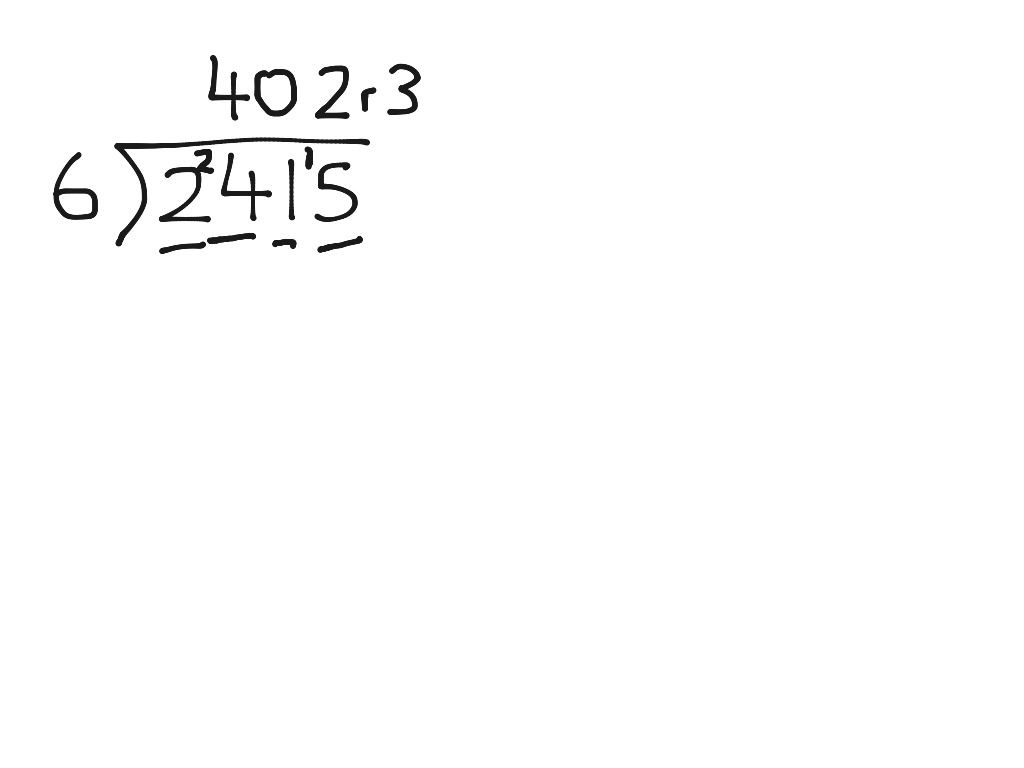 402r3
6)2²41¹5